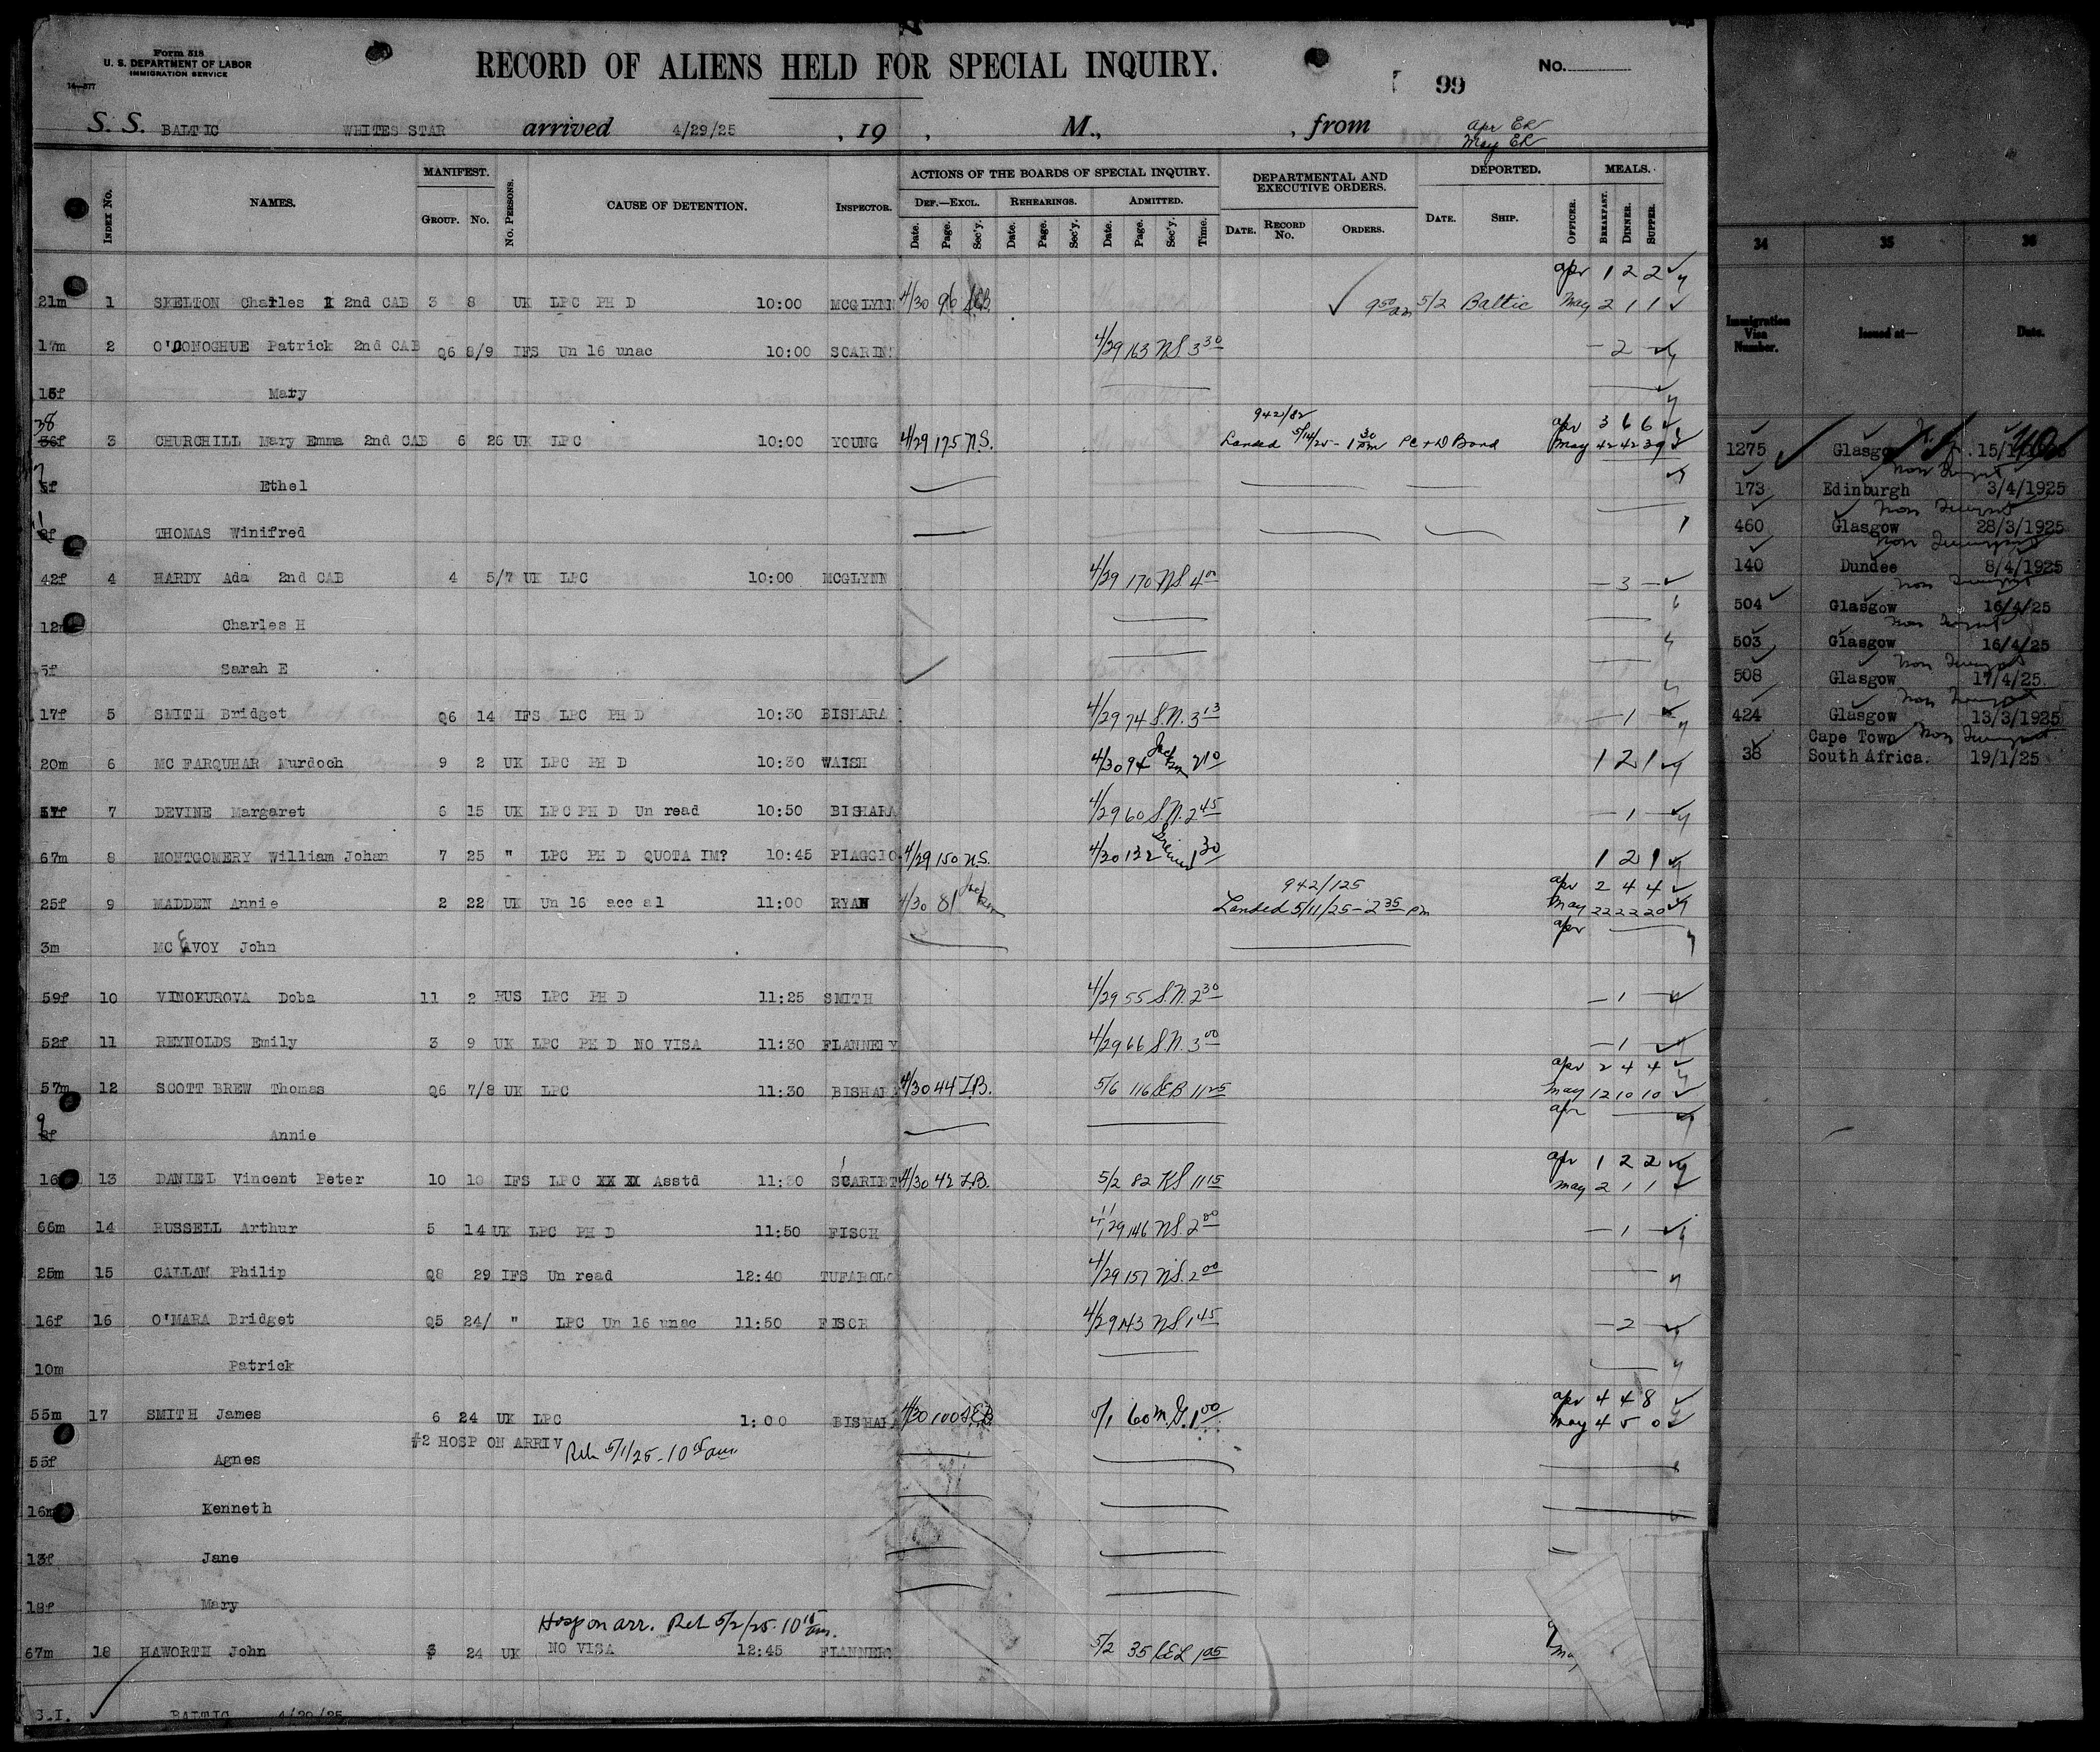 Form 518
U. S. DEPARTMENT OF LABOR
IMMIGRATION SERVICE
14—577
RECORD OF ALIENS HELD FOR SPECIAL INQUIRY.
99
No.
S. S. BALTIC WHITES STAR arrived 4/29/25 , 19 , M., , from
Apr ER
May ER
Index No. NAMES. MANIFEST. Group. No. No. Persons. CAUSE OF DETENTION. Inspector. ACTIONS OF THE BOARDS OF SPECIAL INQUIRY. DEPARTMENTAL AND EXECUTIVE ORDERS. DEPORTED. MEALS.
Def.—Excl. Rehearings. Admitted. Date. Record No. Orders. Date. Ship. Officer. Breakfast. Dinner. Supper.
Date. Page. Sec'y. Date. Page. Sec'y. Date. Page. Sec'y. Time.
Apr 1 2 2
21m 1 SKELTON Charles 2nd CAB 3 8 UK LPC PH D 10:00 MCGLYNN 4/30 96 9 50 am 5/2 Baltic May 2 1 1
17m 2 O'DONOGHUE Patrick 2nd CAB Q6 8/9 IFS Un 16 unac 10:00 SCARIN 4/29 163 NS 3 30 — 2 —
15f Mary
38 942/82 Apr 3 6 6
36f 3 CHURCHILL Mary Emma 2nd CAB 6 26 UK LPC 10:00 YOUNG 4/29 175 N.S. Landed 5/14/25 - 1 30 pm PC + D Bond May 42 42 39
7
5f Ethel
THOMAS Winifred
42f 4 HARDY Ada 2nd CAB 4 5/7 UK LPC 10:00 MCGLYNN 4/29 170 NS 4 00 — 3 —
12 Charles H
5f Sarah E
17f 5 SMITH Bridget Q6 14 IFS LPC PH D 10:30 BISHARA 4/29 74 S.N. 3 13 — 1 —
20m 6 MC FARQUHAR Murdoch 9 2 UK LPC PH D 10:30 WALSH 4/30 94 2 10 1 2 1
57f 7 DEVINE Margaret 6 15 UK LPC PH D Un read 10:50 BISHARA 4/29 60 S.N. 2 45 — 1 —
67m 8 MONTGOMERY William Johan 7 25 " LPC PH D QUOTA IM? 10:45 PIAGGIO 4/29 150 N.S. 4/30 132 1 30 1 2 1
942/125 Apr 2 4 4
25f 9 MADDEN Annie 2 22 UK Un 16 acc al 11:00 RYAN 4/30 81 Landed 5/11/25 - 2 35 pm May 22 22 20
3m MC EAVOY John Apr
59f 10 VINOKUROVA Doba 11 2 RUS LPC PH D 11:25 SMITH 4/29 55 S.N. 2 30 — 1 —
52f 11 REYNOLDS Emily 3 9 UK LPC PH D NO VISA 11:30 FLANNELY 4/29 66 S.N. 3 00 — 1
Apr 2 4 4
57m 12 SCOTT BREW Thomas Q6 7/8 UK LPC 11:30 BISHAR 4/30 44 I.B. 5/6 116 SEB 11 25 May 12 10 10
9 Apr
8f Annie
Apr 1 2 2
16 13 DANIEL Vincent Peter 10 10 IFS LPC XX XX Asstd SCARLET 4/30 42 I.B. 5/2 82 KS 11 15 May 2 1 1
66m 14 RUSSELL Arthur 5 14 UK LPC PH D 11:50 FISCH 4/29 146 NS. 2 00 — 1 —
25m 15 CALLAN Philip Q8 29 IFS Un read 12:40 TUFAROLO 4/29 157 NS. 2 00
16f 16 O'MARA Bridget Q5 24/ " LPC Un 16 unac 11:50 FISCH 4/29 143 NS 1 45 — 2 —
10m Patrick
Apr 4 4 8
55m 17 SMITH James 6 24 UK LPC 1:00 BISHARA 4/30 100 SEB 5/1 60 M.G. 1 00 May 4 5 0
#2 HOSP ON ARRIV Rel. 5/1/25 - 10 05 am
55f Agnes
16m Kenneth
13f Jane
18f Mary
Hosp on arr. Rel 5/2/25 - 10 15 am.
67m 18 HAWORTH John 24 UK NO VISA 12:45 FLANNERY 5/2 35 1 05
S.I. BALTIC 4/29/25
34 35 36
Immigration Visa Number. Issued at— Date.
1275 Glasgow
Non Immgt
173 Edinburgh 3/4/1925
Non Immgt
460 Glasgow 28/3/1925
Non Immgt
140 Dundee 8/4/1925
Non Immgt
504 Glasgow 16/4/25
Non Immgt
503 Glasgow 16/4/25
Non Immgt
508 Glasgow 17/4/25
Non Immgt
424 Glasgow 13/3/1925
Cape Town Non Immgt
38 South Africa. 19/1/25